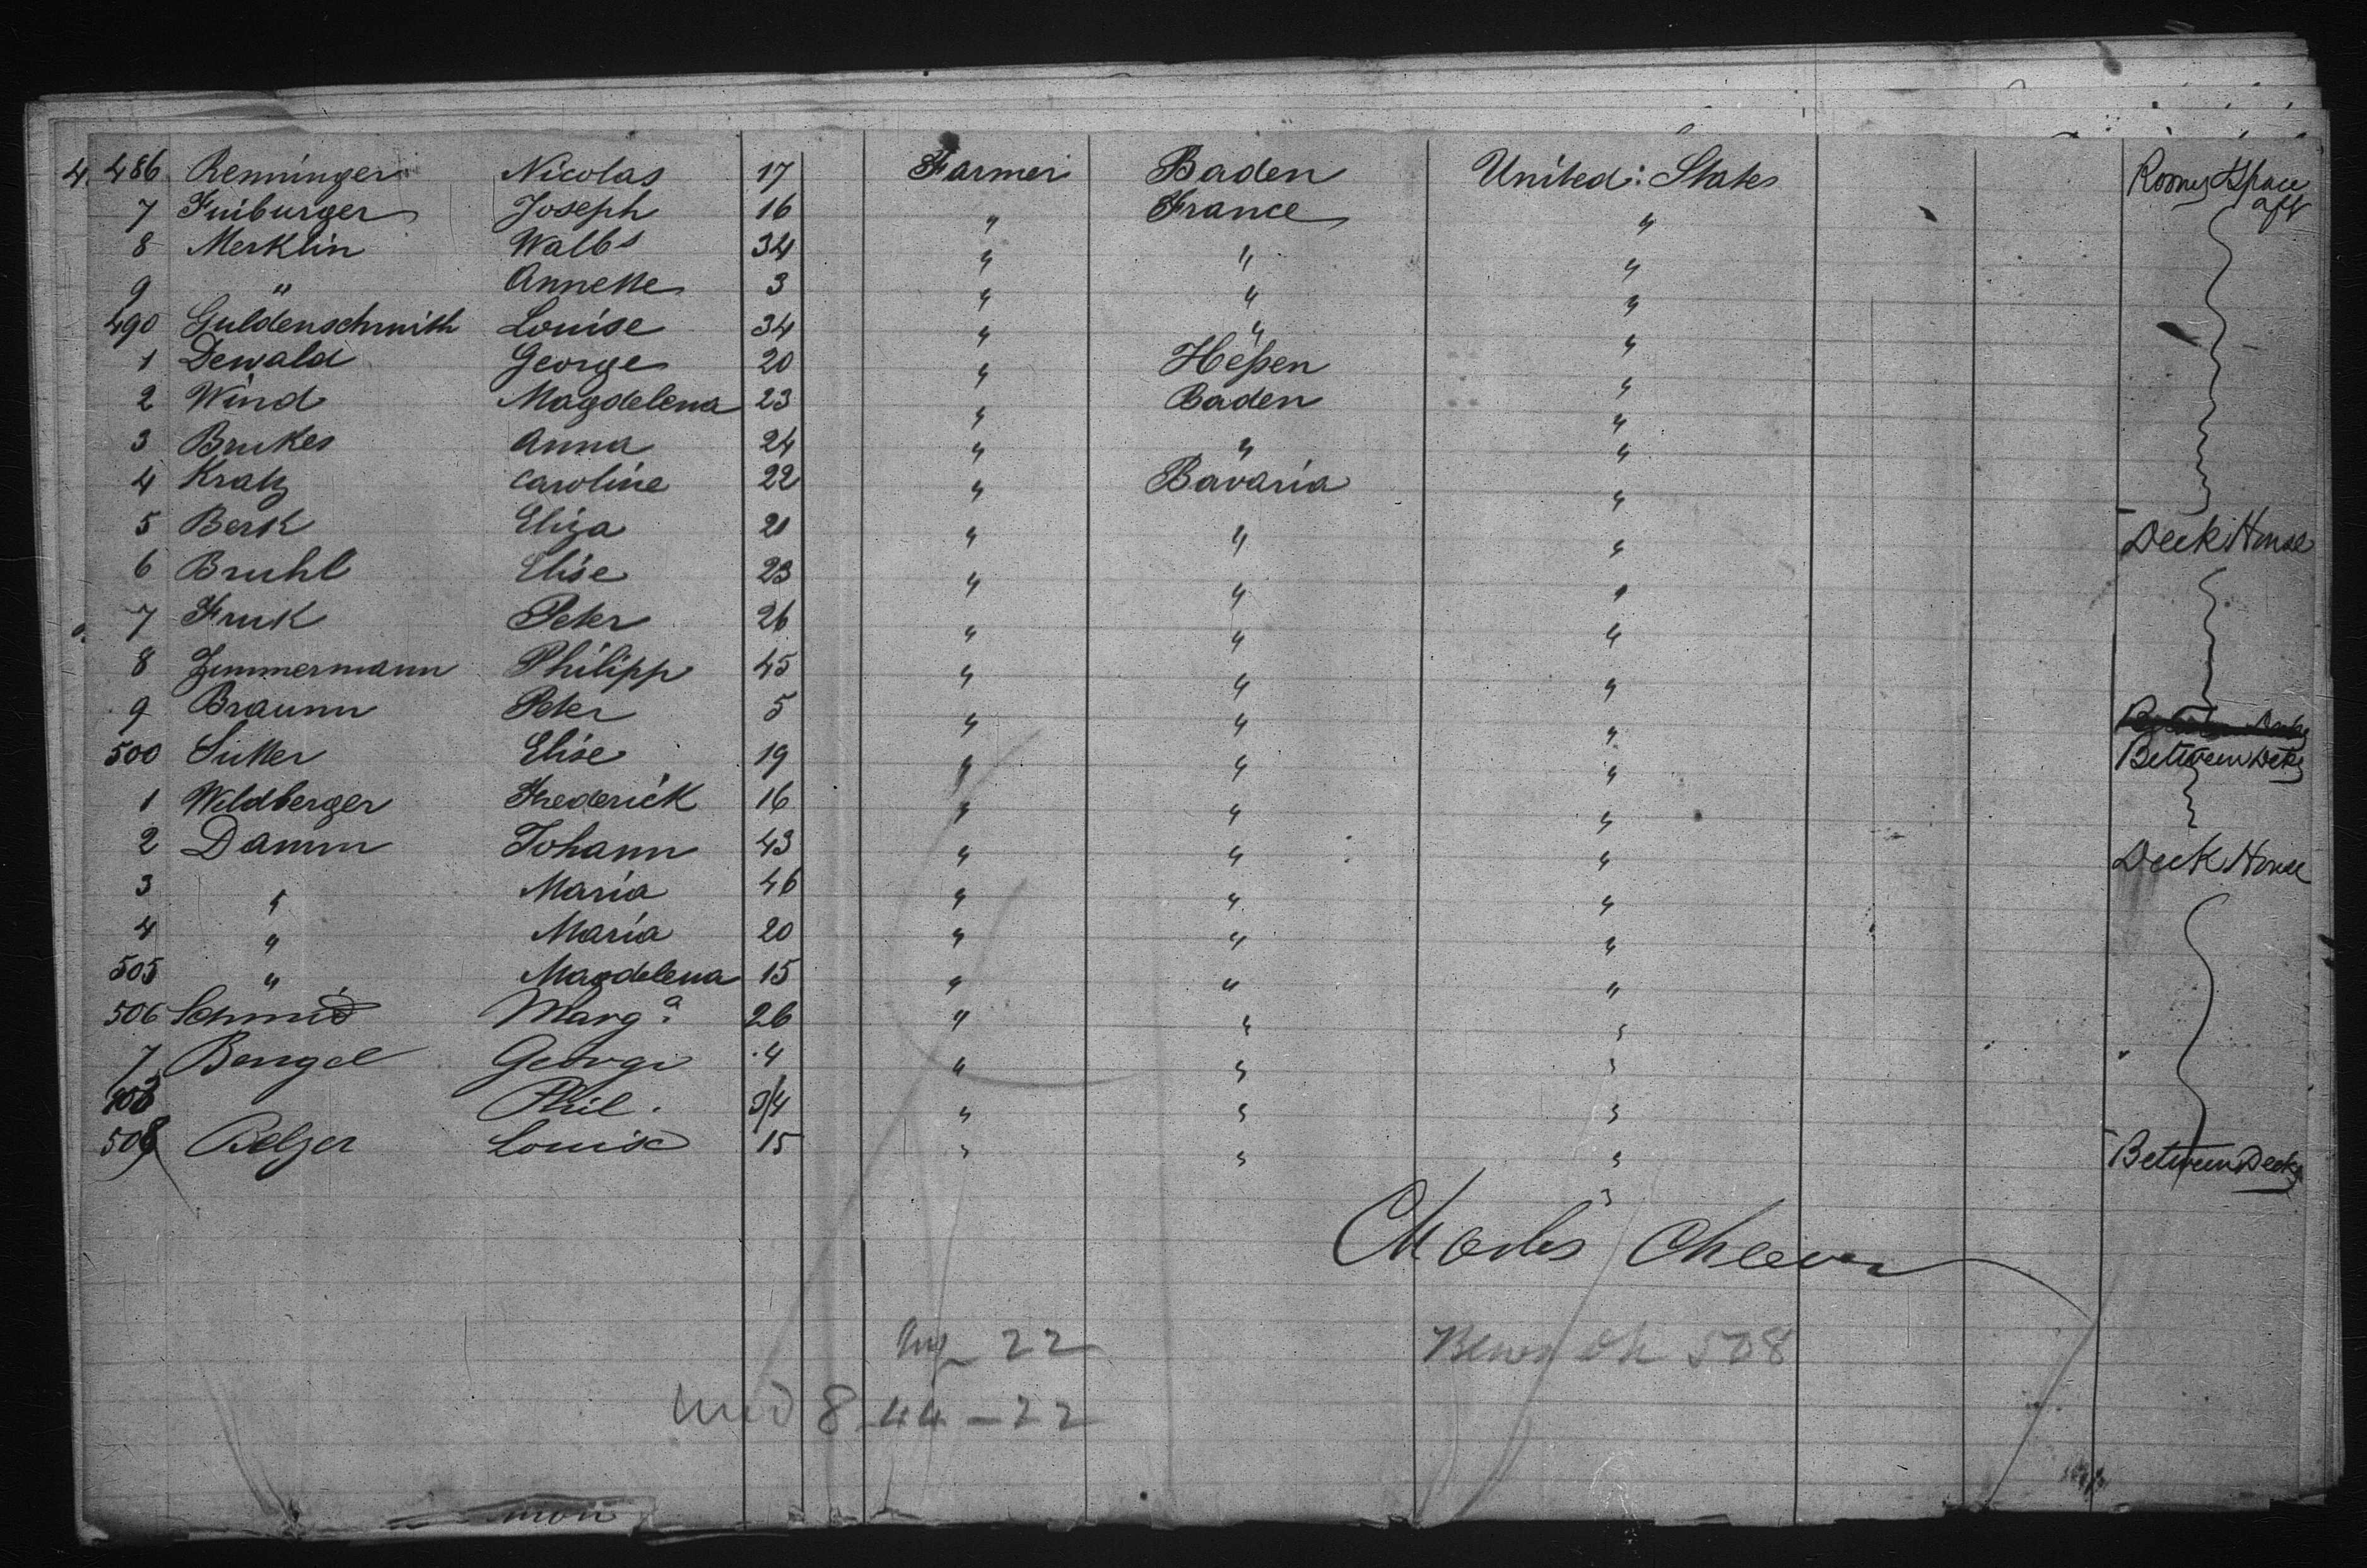 4. 486 Renninger Nicolas 17 Farmer Baden United States Rooms & Space aft
7 Fuiburger Joseph 16 " France "
8 Merklin Walbs 34 " " "
9 " Annette 3 " " "
490 Guldenschmith Louise 34 " " "
1 Dewald George 20 " Heßen "
2 Wind Magdelena 23 " Baden "
3 Brukes Anna 24 " " "
4 Kratz Caroline 22 " Bavaria "
5 Berk Eliza 21 " " " Deck House
6 Bruhl Elise 23 " " "
7 Fruk Peter 26 " " "
8 Zimmermann Philipp 45 " " "
9 Braunn Peter 5 " " "
500 Sutter Elise 19 " " " Between Decks
1 Wildberger Frederick 16 " " "
2 Damm Johann 43 " " " Deck House
3 " Maria 46 " " "
4 " Maria 20 " " "
505 " Magdelena 15 " " "
506 Schmid Marg.a 26 " " "
7 Bengel George 4 " " "
Phil. 3/4 " " "
508 Louise 15 " " " Between Decks
Charles
22
508
8 44-22